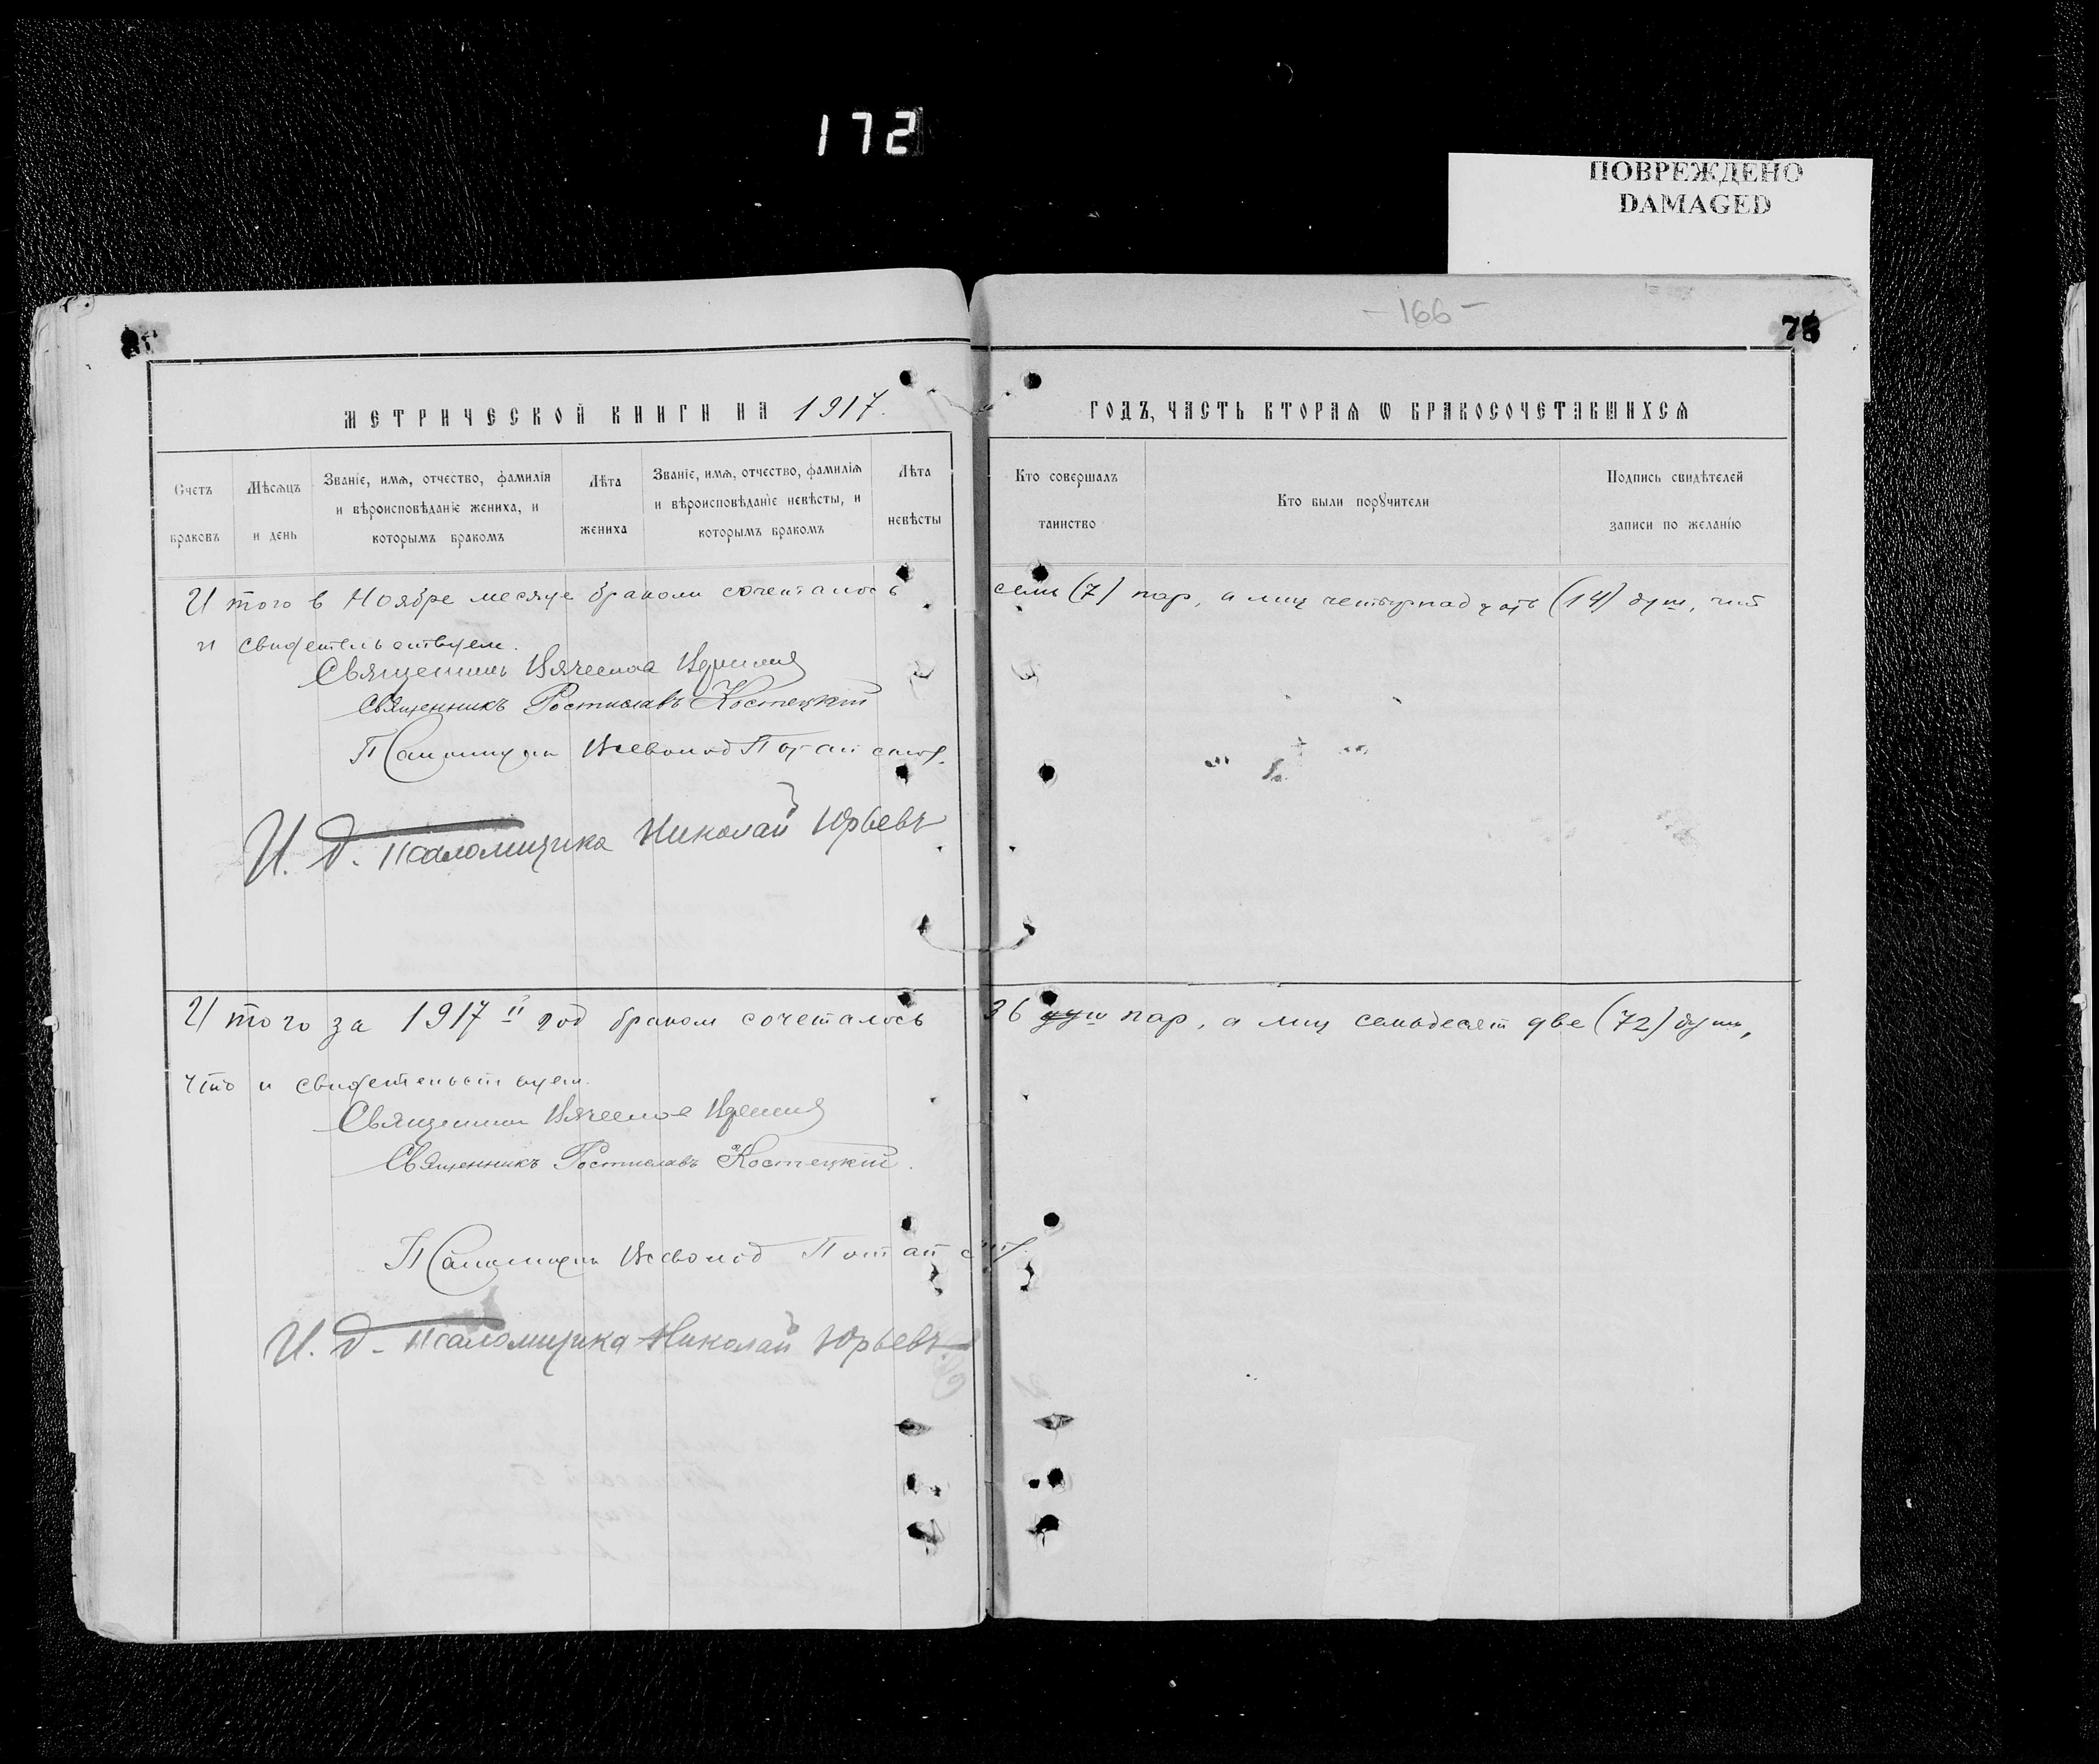 172
ПОВРЕЖДЕНО
DAMAGED
- 166 -
78
МЕТРИЧЕСКОЙ КНИГИ НА 1917.
ГОДЪ, ЧАСТЬ ВТОРАѦ Ѡ БРАКОСОЧЕТАВШИХСѦ
Счетъ браковъ
Мѣсѧцъ и день
Званіе, имѧ, отчество, фамиліѧ и вѣроисповѣданіе жениха, и которымъ бракомъ
Лѣта жениха
Званіе, имѧ, отчество, фамиліѧ и вѣроисповѣданіе невѣсты, и которымъ бракомъ
Лѣта невѣсты
Кто совершалъ таинство
Кто были порꙋчители
Подпись свидѣтелей записи по желанію
Итого в Ноябре месяце браком сочеталось семь (7) пар, а лиц четырнадцать (14) душ, что
и свидетельствуем.
Священник Вячеслав
Священникъ Ростиславъ Костецкій
Псаломщик Всеволод
И. д. псаломщика Николай Юрьевъ
Итого за 1917й год браком сочеталось 36 душ пар, а лиц семьдесят две (72) душ,
что и свидетельствуем.
Священник Вячеслав
Священникъ Ростиславъ Костецкій.
Псаломщик Всеволод
И. д. псаломщика Николай Юрьевъ